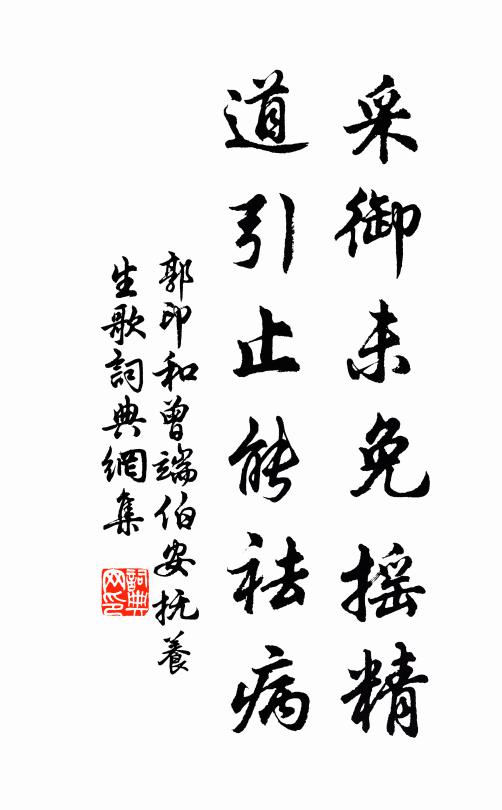 采御未免摇精
道引止能祛病
郭印和曾端伯安抚養
生歌詞典網集
詞典
网印